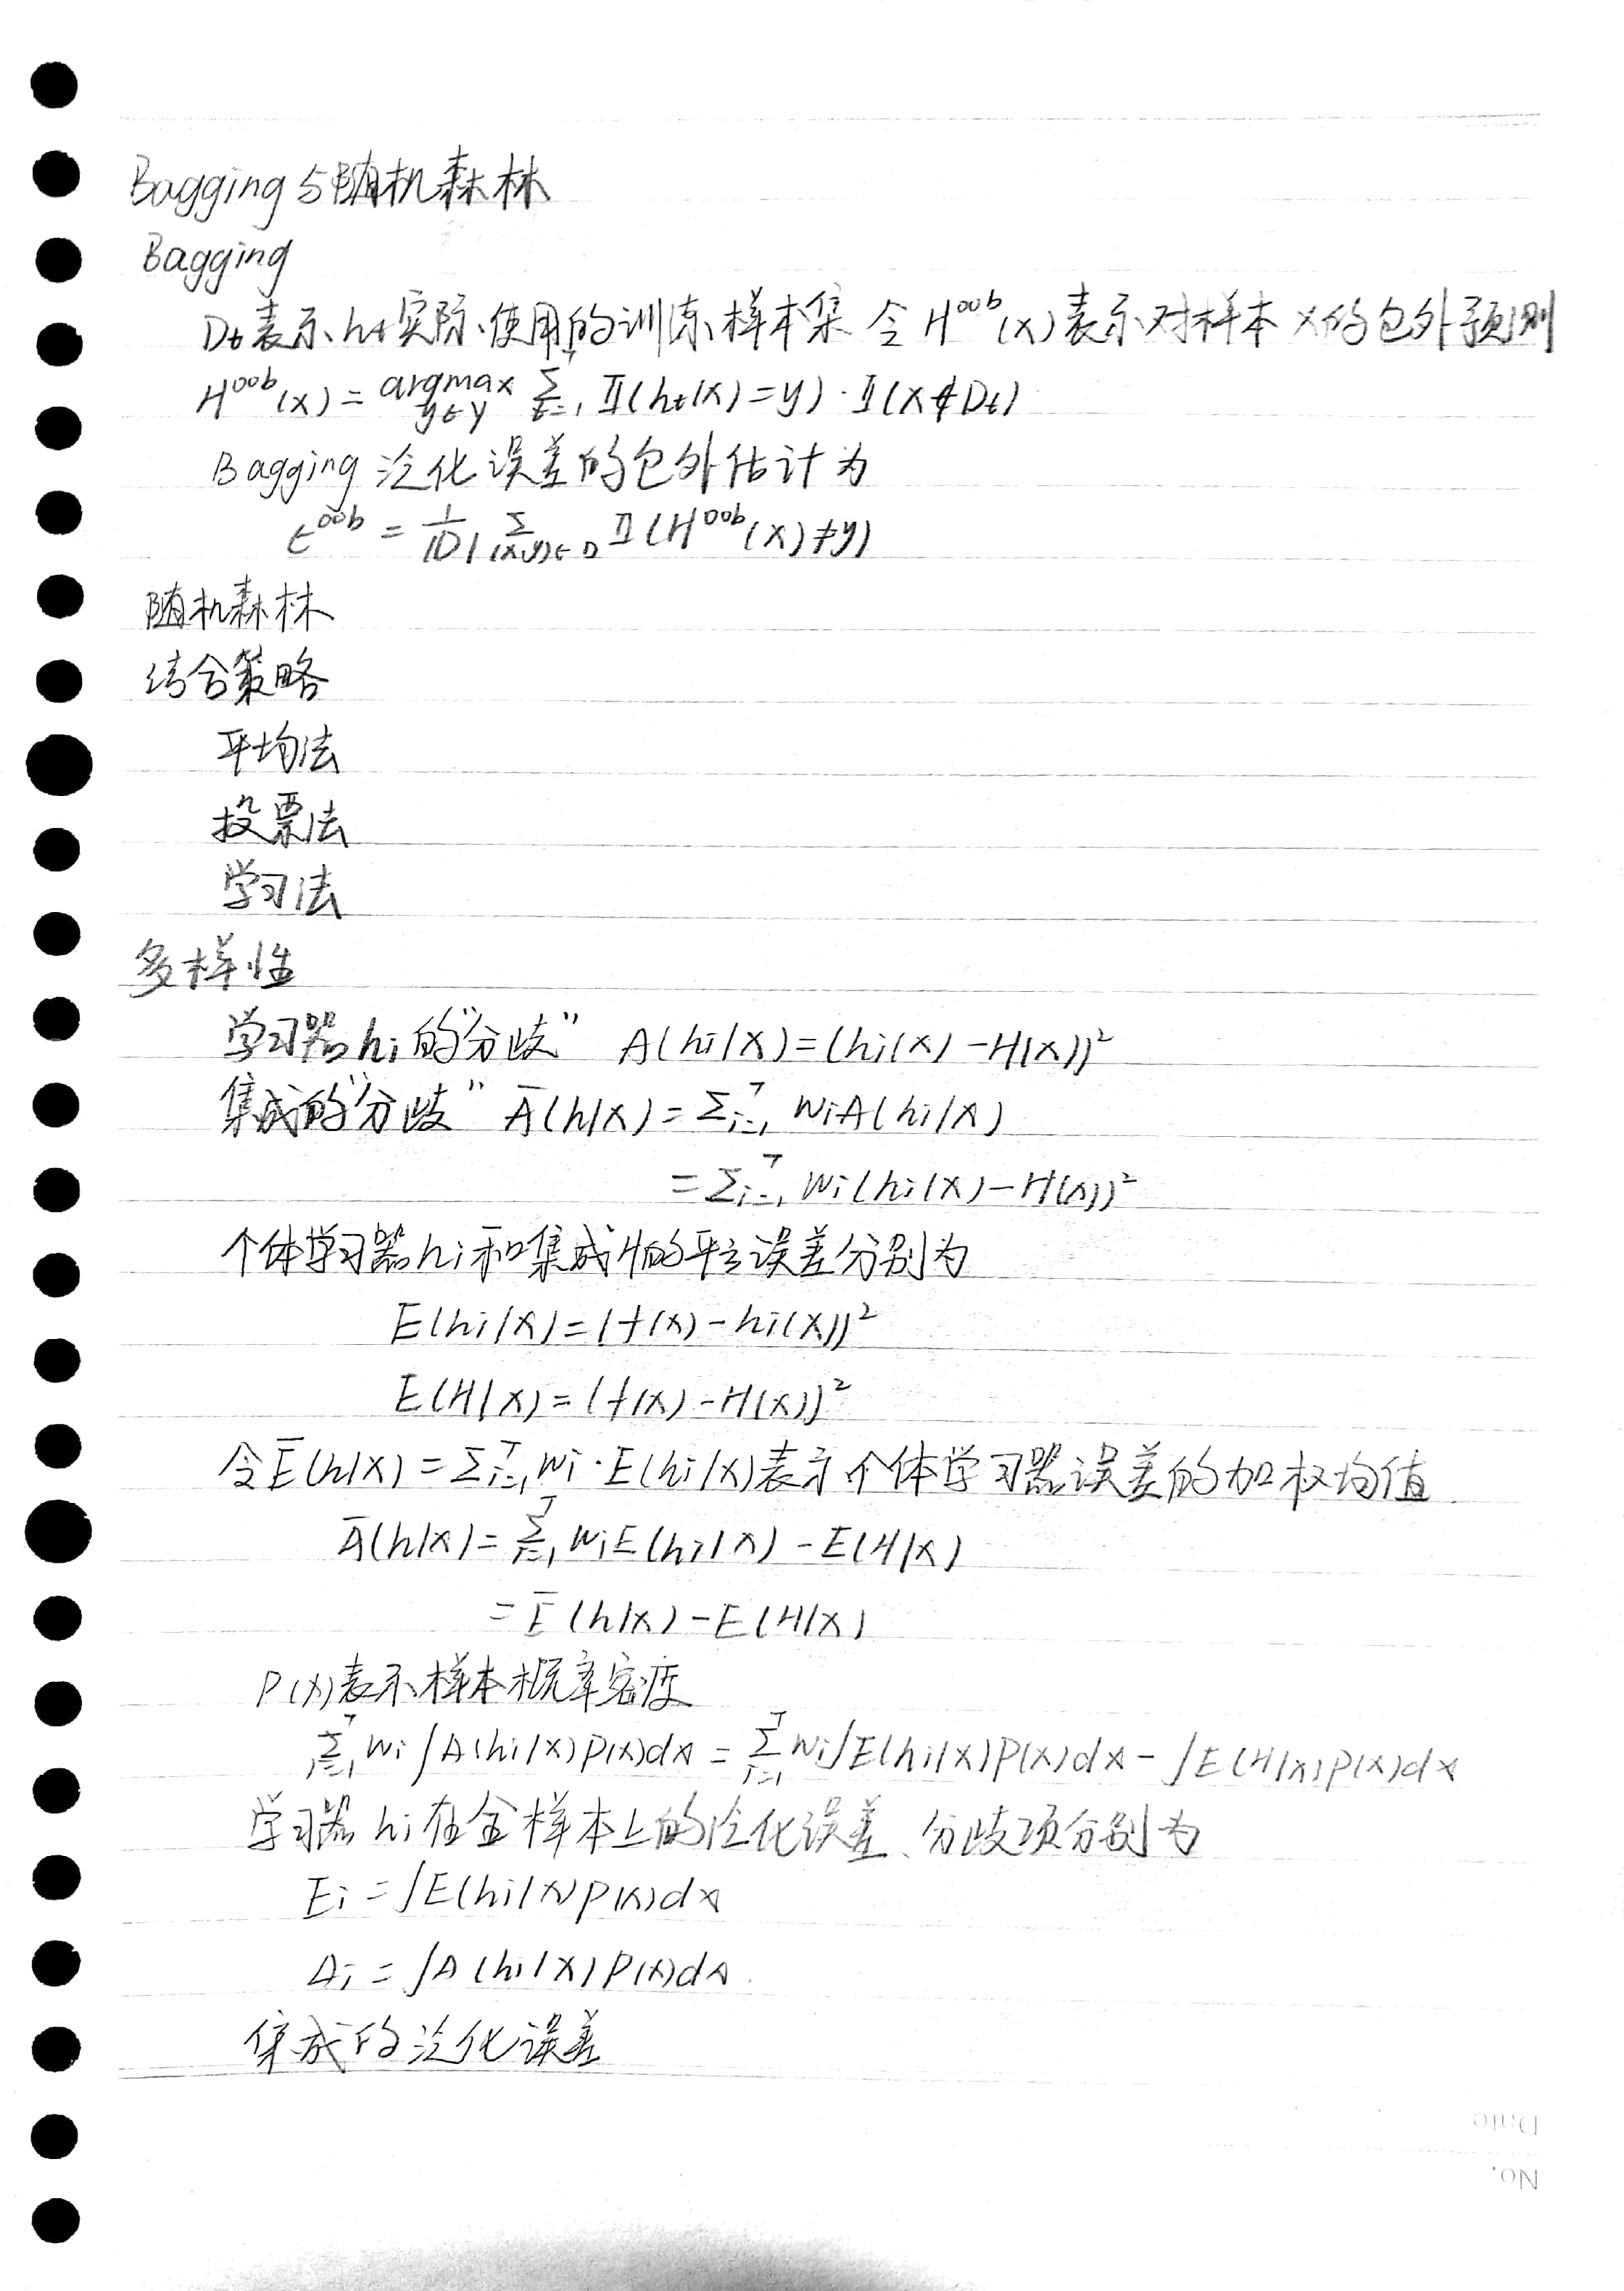 Bagging与随机森林
Bagging
Dt表示ht实际使用的训练样本集 令H^oob(x)表示对样本x的包外预测
H^oob(x) = argmax_{y∈Y} Σ_{t=1}^T Ⅱ(ht(x)=y)·Ⅱ(x∉Dt)
Bagging泛化误差的包外估计为
ϵ^oob = 1/|D| Σ_{(x,y)∈D} Ⅱ(H^oob(x)≠y)
随机森林
结合策略
平均法
投票法
学习法
多样性
学习器hi的“分歧” A(hi|x)=(hi(x)-H(x))²
集成的“分歧” Ā(h|x)=Σ_{i=1}^T wiA(hi|x)
=Σ_{i=1}^T wi(hi(x)-H(x))²
个体学习器hi和集成H的平方误差分别为
E(hi|x)=(f(x)-hi(x))²
E(H|x)=(f(x)-H(x))²
令Ē(h|x)=Σ_{i=1}^T wi·E(hi|x)表示个体学习器误差的加权均值
Ā(h|x)=Σ_{i=1}^T wiE(hi|x)-E(H|x)
=Ē(h|x)-E(H|x)
P(x)表示样本概率密度
Σ_{i=1}^T wi∫A(hi|x)p(x)dx=Σ_{i=1}^T wi∫E(hi|x)p(x)dx-∫E(H|x)p(x)dx
学习器hi在全样本上的泛化误差、分歧项分别为
Ei=∫E(hi|x)p(x)dx
Ai=∫A(hi|x)p(x)dx
集成的泛化误差
Date
No.